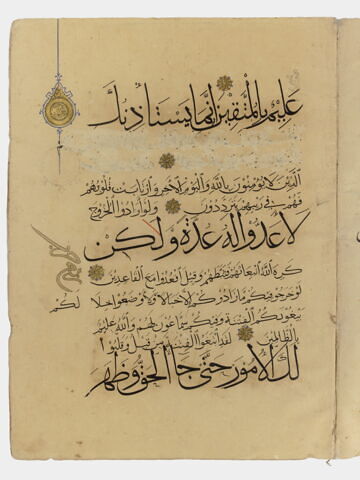 عليم بالمتقين انما يستأذنك
الذين لا يؤمنون بالله واليوم الاخر وارتابت قلوبهم
فهم في ريبهم يترددون ولو ارادوا الخروج
لاعدوا له عدة ولكن
كره الله انبعاثهم فثبطهم وقيل اقعدوا مع القاعدين
لو خرجوا فيكم ما زادوكم الا خبالا ولاوضعوا خلالكم
يبغونكم الفتنة وفيكم سماعون لهم والله عليم
بالظالمين لقد ابتغوا الفتنة من قبل وقلبوا
لك الامور حتى جا الحق وظهر